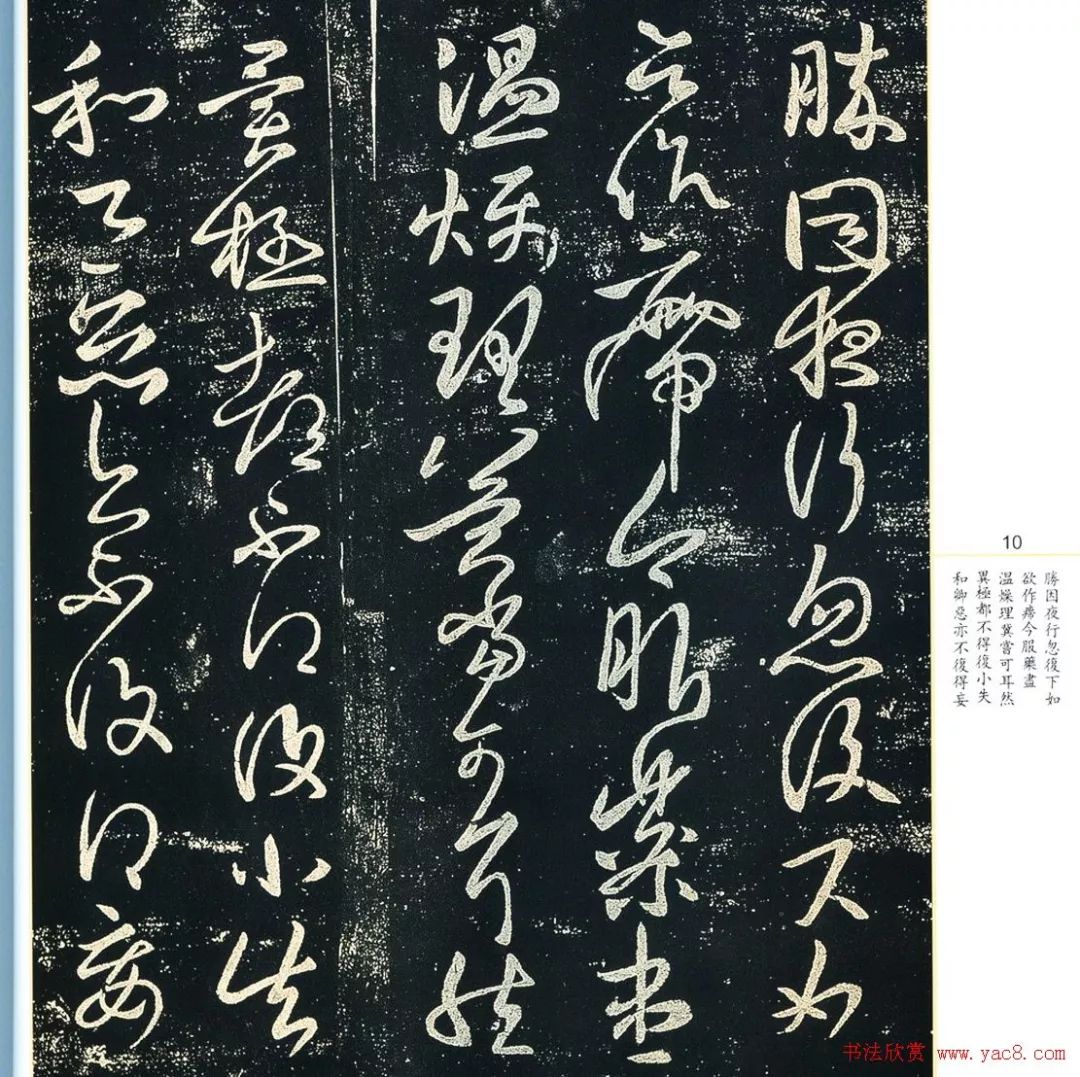 勝因夜行忽復下如
欲作癆今服藥盡
温燥理冀當可耳然
異極都不得復小失
和卿惡亦不復得妄
10
勝因夜行忽復下如
欲作癆今服藥盡
温燥理冀嘗可耳然
異極都不得復小失
和卿惡亦不復得妄
书法欣赏 www.yac8.com